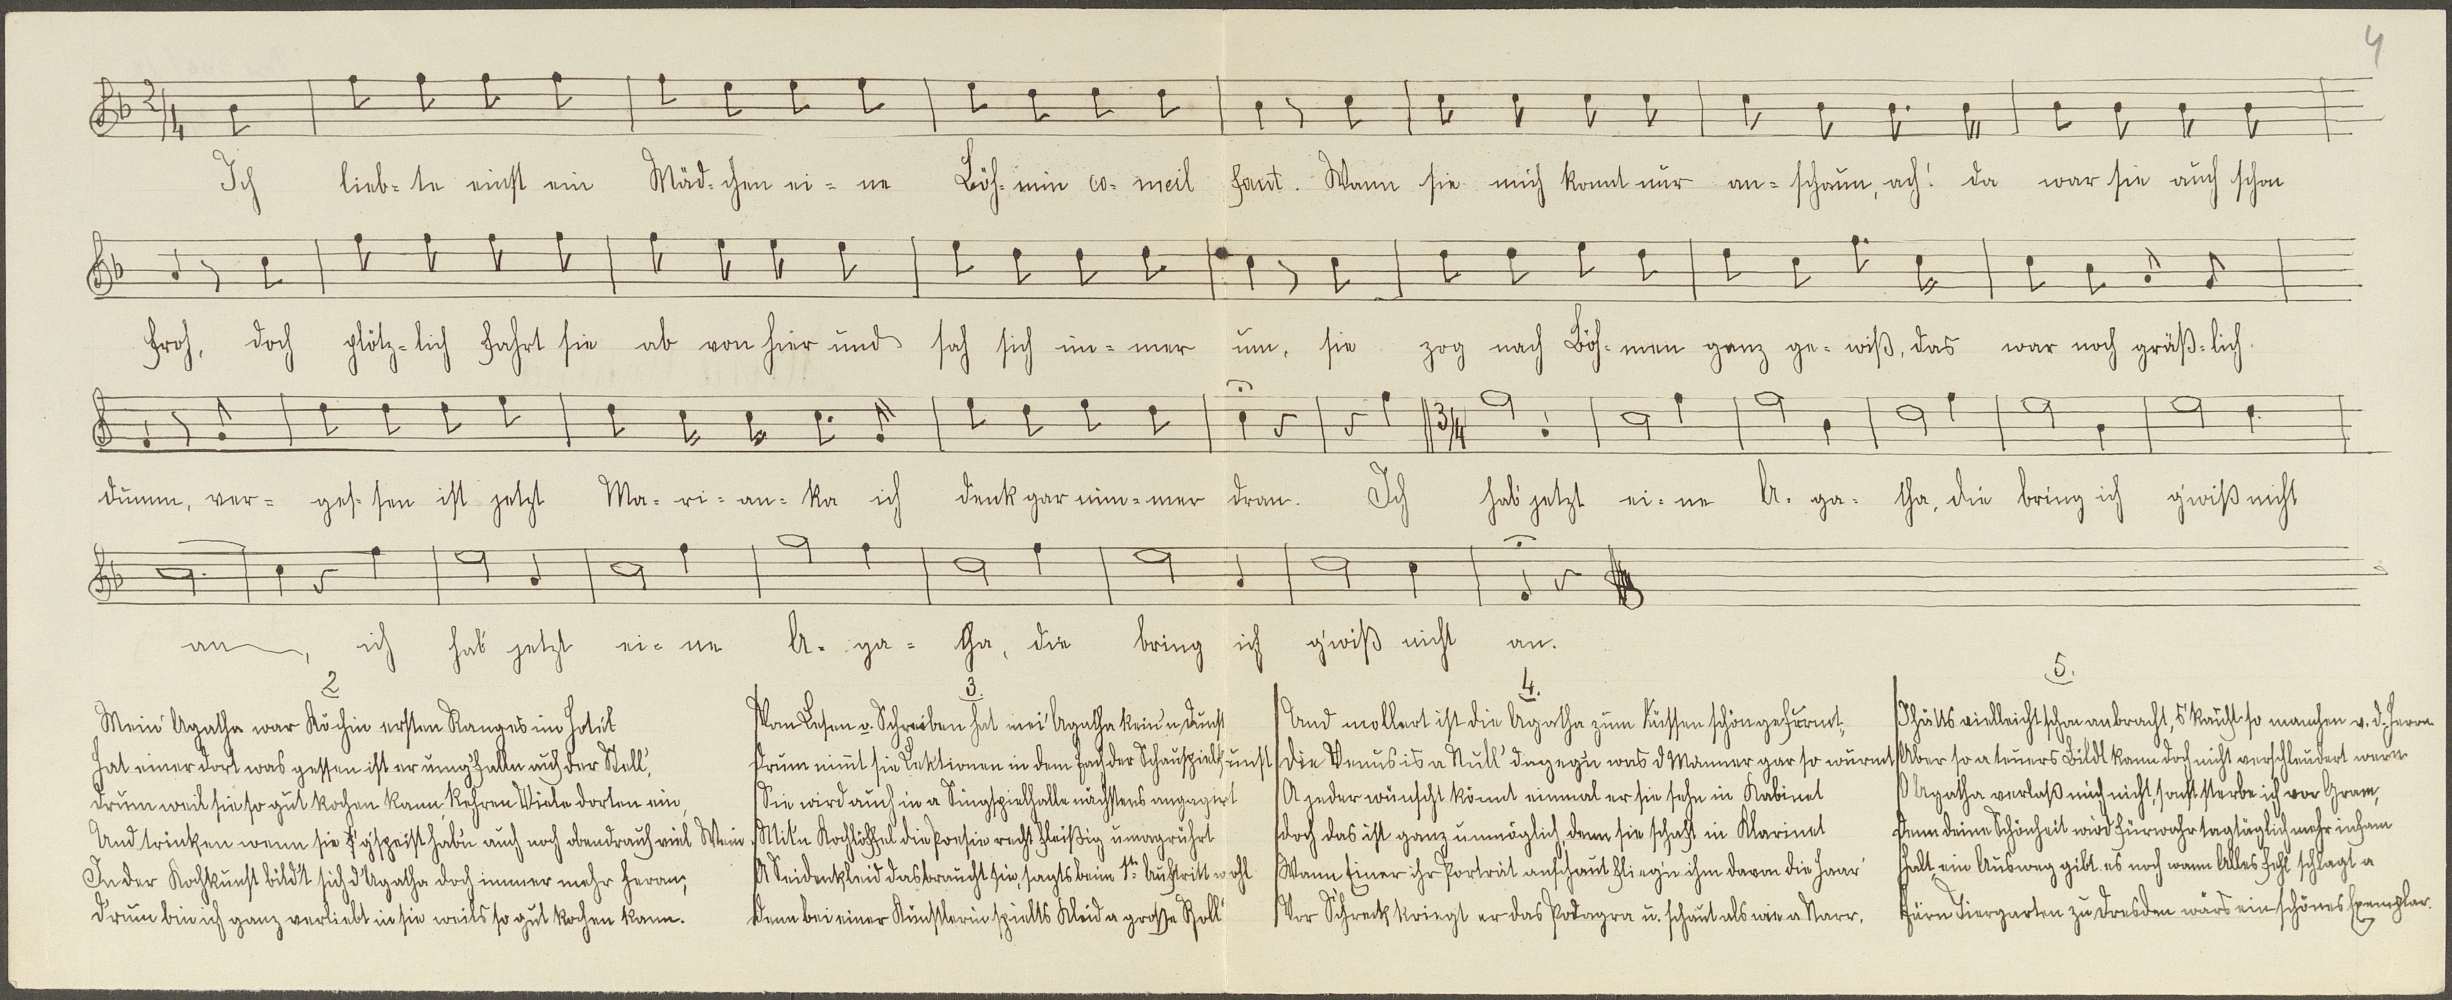 4
2/4
Ich lieb-te einst ein Mäd-chen ei-ne Böh-min co-meil faut. Wann sie mich konnt nur an-schaun, ach! da war sie auch schon
froh, doch plötz-lich fahrt sie ab von hier und sah sich im-mer um, sie zog nach Böh-men ganz ge-wiß, das war noch gräß-lich
3/4
dumm, ver-ges-sen ist jetzt Ma-ri-an-ka ich denk gar nim-mer dran. Ich hab' jetzt ei-ne A-ga-tha, die bring ich g'wiß nicht
an, ich hab' jetzt ei-ne A-ga-tha, die bring ich g'wiß nicht an.
2
Mein' Agatha war Köchin ersten Ranges im Hotel
Hat einer dort was gessen ist er umg'falln auf der Stell',
Drum weil sie so gut kochen kann, kehren Viele dorten ein,
Und trinken wenn sie g'speist hab'n auch noch obendrauf viel Wein
In der Kochkunst bild't sich d'Agatha doch immer mehr heran;
Drum bin ich ganz verliebt in sie weils so gut kochen kann.
3.
Von Lesen u. Schreiben hat mei' Agatha kein'n Dunst
Drum nimt sie Lektionen in dem Fach der Schauspielkunst
Sie wird auch in a Singspielhalle nächstens angagirt
Mit'n Kochlöffel die Poesie recht fleißig umagrührt
A Seidenkleid das braucht sie, sagts beim 1tn Auftritt wohl
Denn bei einer Künstlerin spielts Kleid a große Roll'
4.
Und mollert ist die Agatha zum Küssen schön geformt;
Die Venus is a Null' dagegn was d Manner gar so wurmt
A jeder wünscht könnt einmal er sie sehn in Kabinet
doch das ist ganz unmöglich, denn sie schaft in Klarinet
Wann Einer ihr Porträt anschaut flieg'n ihm davon die Haar'
Vor Schreck kriegt er das Podagra u. schaut als wie a Narr.
5.
I hätts vielleicht schon anbracht, s' kauft so manchen v. d. Herrn
Aber so a teuers Bildl kann doch nicht verschleudert wern
O Agatha verlaß mich nicht, sonst sterbe ich vor Gram,
Denn deine Schönheit wird fürwahr tagtäglich mehr infam
Halt, ein Ausweg gibt es noch wann Alles fehl schlagt a
Fürn Tiergarten zu Dresden wärs ein schönes Exemplar.